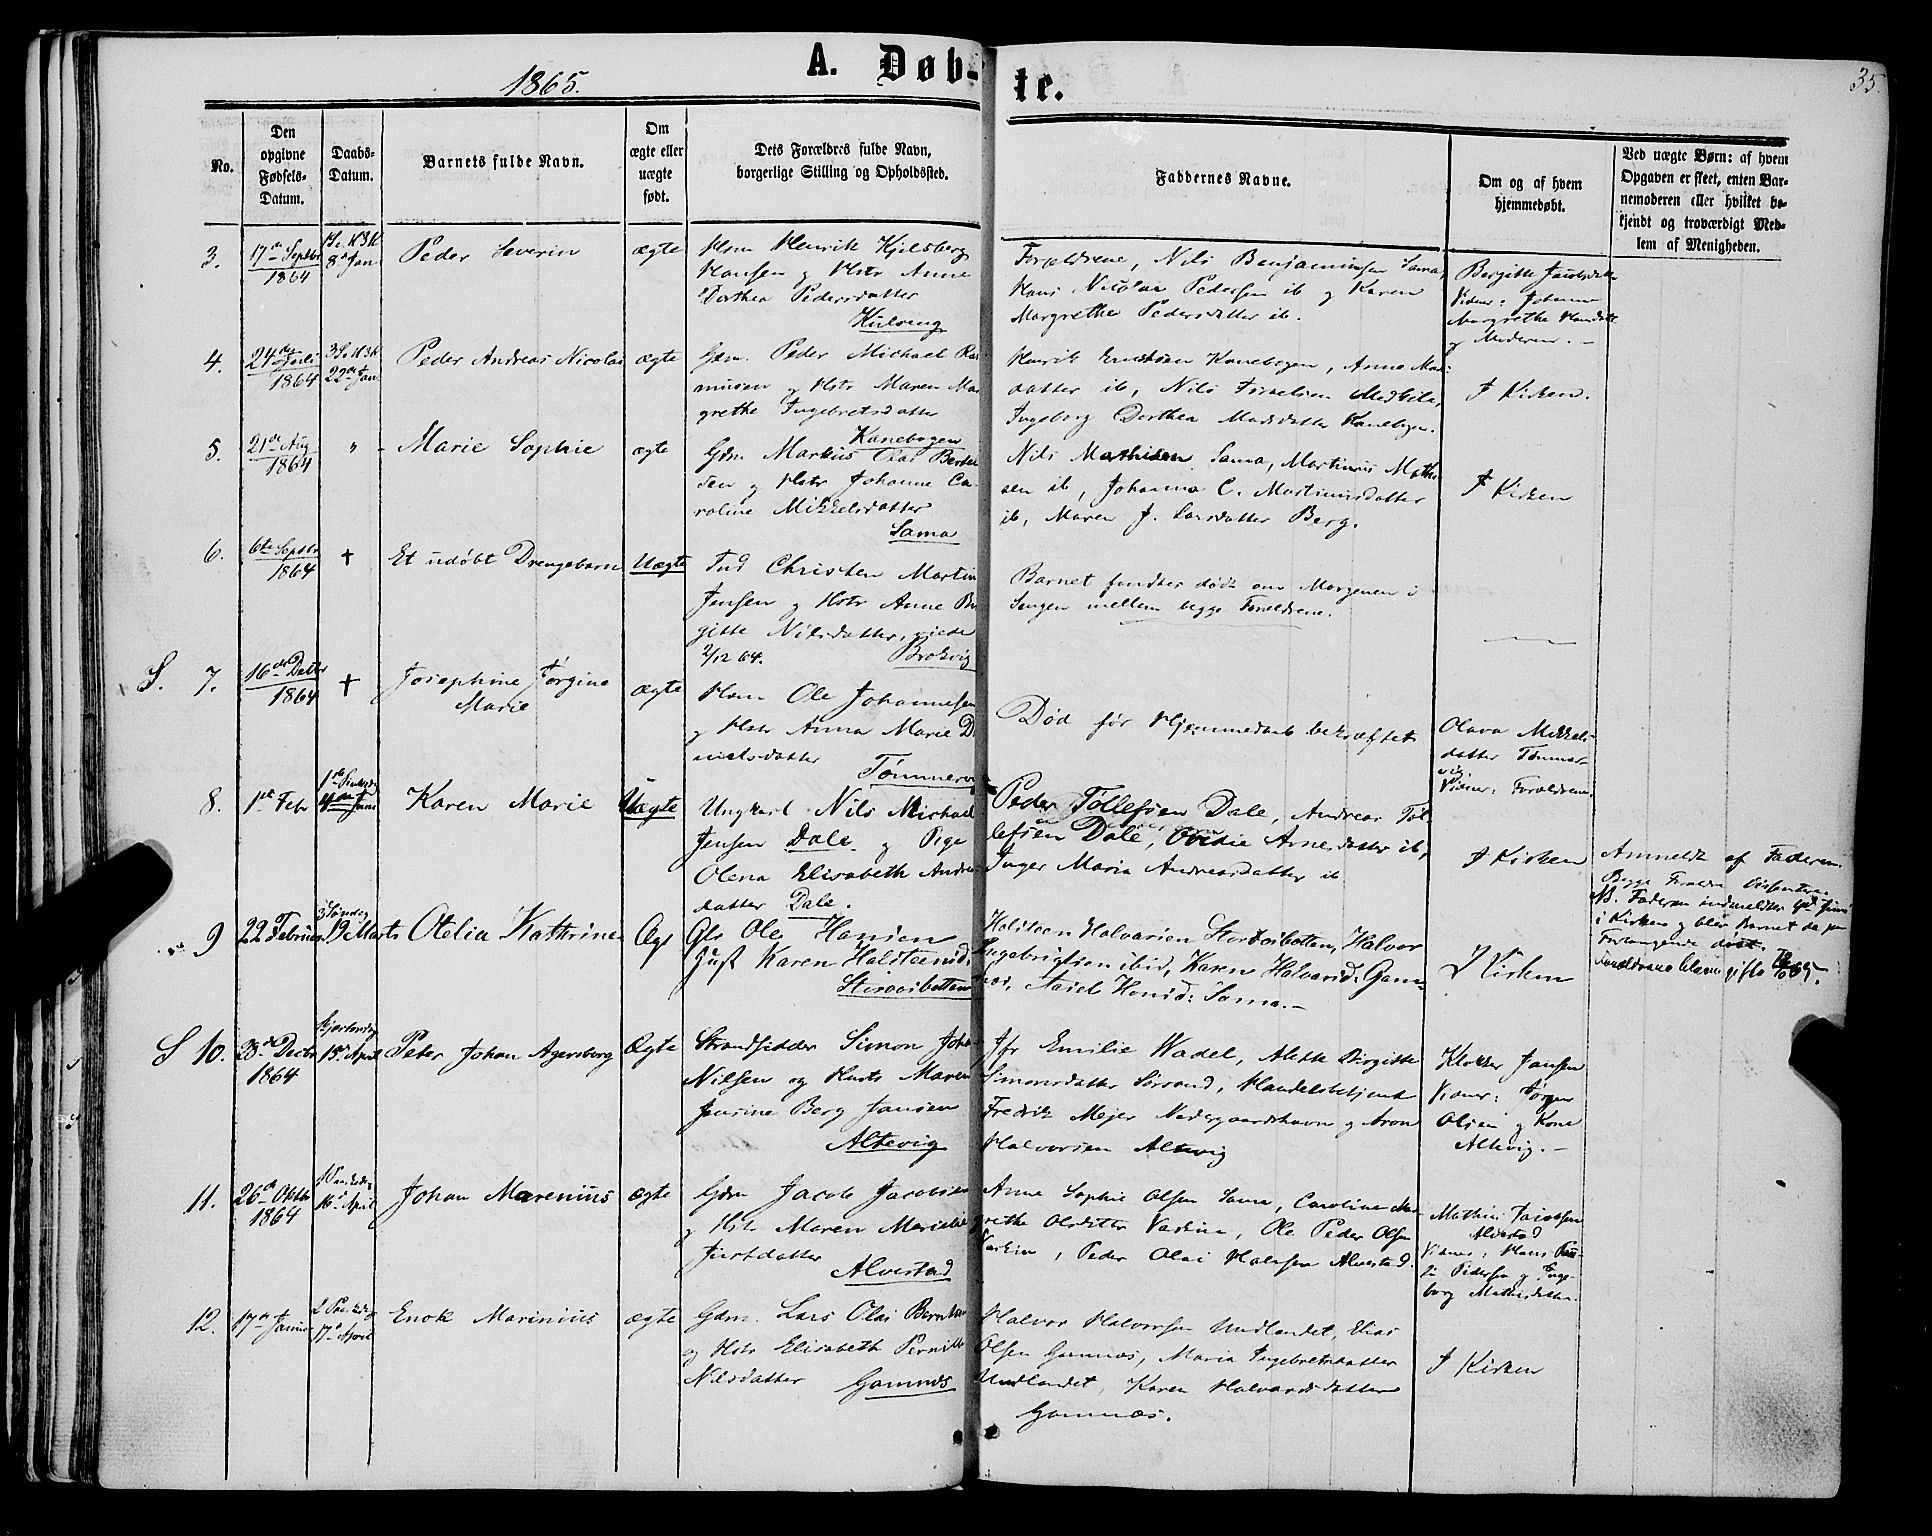 1865.
A. Døb-
te.
35.
No.
Den
opgivne
Fødsels-
Datum.
Daabs-
Datum.
Barnets fulde Navn.
Om
ægte eller
uægte
født.
Dets Forældres fulde Navn,
borgerlige Stilling og Opholdssted.
Faddernes Navne.
Om og af hvem
hjemmedøbt.
Ved uægte Børn: af hvem
Opgaven er skeet, enten Bar-
nemoderen eller hvilket be-
kjendt og troværdigt Med-
lem af Menigheden.
3.
17de Septbr
1864
8de Jan
Peder Severin
ægte
Hsm Henrik Kjelsberg
Hansen og Hstr Anne
Dorthea Pedersdatter
Forældrene, Nils Benjaminsen Sama,
Hans Nicolai Pedersen ib og Karen
Margrethe Pedersdatter ib.
Bergitte
Vidner: Johanna
Margrethe
og Moderen.
4.
24de Juli
1864
22de Jan
Peder Andreas Nicolai
ægte
Gdm. Peder Michael Ras
musen og Hstr Maren Mar
grethe Ingebretsdatter
Kanebogen
Henrik Kanebogen, Anna
datter ib, Nils
Ingeborg Dorthea Madsdatter Kanebogen.
I Kirken.
5.
21de Aug
1864
"
Marie Sophie
ægte
Gdm Markus Olai
sen og Hstr Johanne Ca-
roline Mikkelsdatter
Sama
Nils Mathisen Sama, Martinus Mathi
sen ib, Johanna C. Martinusdatter
ib, Maren J. Larsdatter Berg.
I Kirken
6.
6te Septbr
1864
+
Et udøbt Drengebarn
Uægte
Ind Christen Martin
Jensen og Hstr Anne Bir
gitte Nilsdatter, viede
2/12 64.
Brokvig
Barnet fandtes dødt om Morgenen i
Sengen mellem begge Forældrene.
S. 7.
16de Decbr
1864
+
Josephine Jørgine
Marie
Ægte
Hsm Ole Johannesen
og Hstr Anna Marie Da
nielsdatter
Død før Hjemmedaab bekræftet
Olava Mikkels-
datter Tømmer-
vig
Vidner: Forældrene.
8.
1ste Febr
Karen Marie
Uægte
Ungkarl Nils Michael
Jensen Dale og Pige
Olena Elisabeth Andreas
datter Dale.
Peder Tollefsen Dale, Andreas Tol
lefsen Dale, Ovidie Arnedatter ib,
Inger Maria Andreasdatter ib
I Kirken
Anmeldt af Faderen.
Begge Forældre Dissentere.
NB. Faderen indmeldtes
i Kirken og blev Barnet da paa
Forlangende døbt.
Forældrene bleve gifte
9
22 Februar
3 Søndag
19 Marts
Otelia Kathrine
Ægt
Gbr Ole Hansen
Hust Karen Halsteensd:
Halsteen Halvorsen Storvoibotten, Halvor
Ingebrigtsen ibid, Karen Halvorsd: Gam-
næs, Sama.-
I Kirken
S 10.
28de Decbr
1864
Skjærtorsdag
15de April
Peter Johan Agersborg
Ægte
Strandsidder Simon Joh
Nilsen og Hust: Maren
Jensine Berg Jansen
Altevig
Jfr Emilie Wadel, Alette Birgitte
Simonsdatter Sørsand, Handelsbetjent
Fredrik Mejer Nedergaardshavn og Aron
Halvorsen Altevig
Klokker Jansen
Vidner: Jørgen
Olsen og Kone
Altevig.-
11.
26de Oktbr
1864
16de April
Johan Marenius
ægte
Gdm Jacob Jacobsen
og Hst: Maren
Justdatter
Alvestad
Anne Sophie Olsen Sama, Caroline Mar
grethe Ole Peder Olsen
Peder Olai Hansen Alvestad.
Mathis Jacobsen
Alvestad
Vidner: Hans
Pedersen og Inge-
borg Mathisdatter.
12.
17de Januar
17de April
Enok Marinius
ægte
Gdm. Lars Olai
og Hstr Elisabeth Pernille
Nilsdatter
Gamnæs
Halvor Halvorsen Undlandet, Elias
Olsen Gamnæs, Maria Ingebretsdatter
Undlandet, Karen Halvardsdatter
Gamnæs.
I Kirken